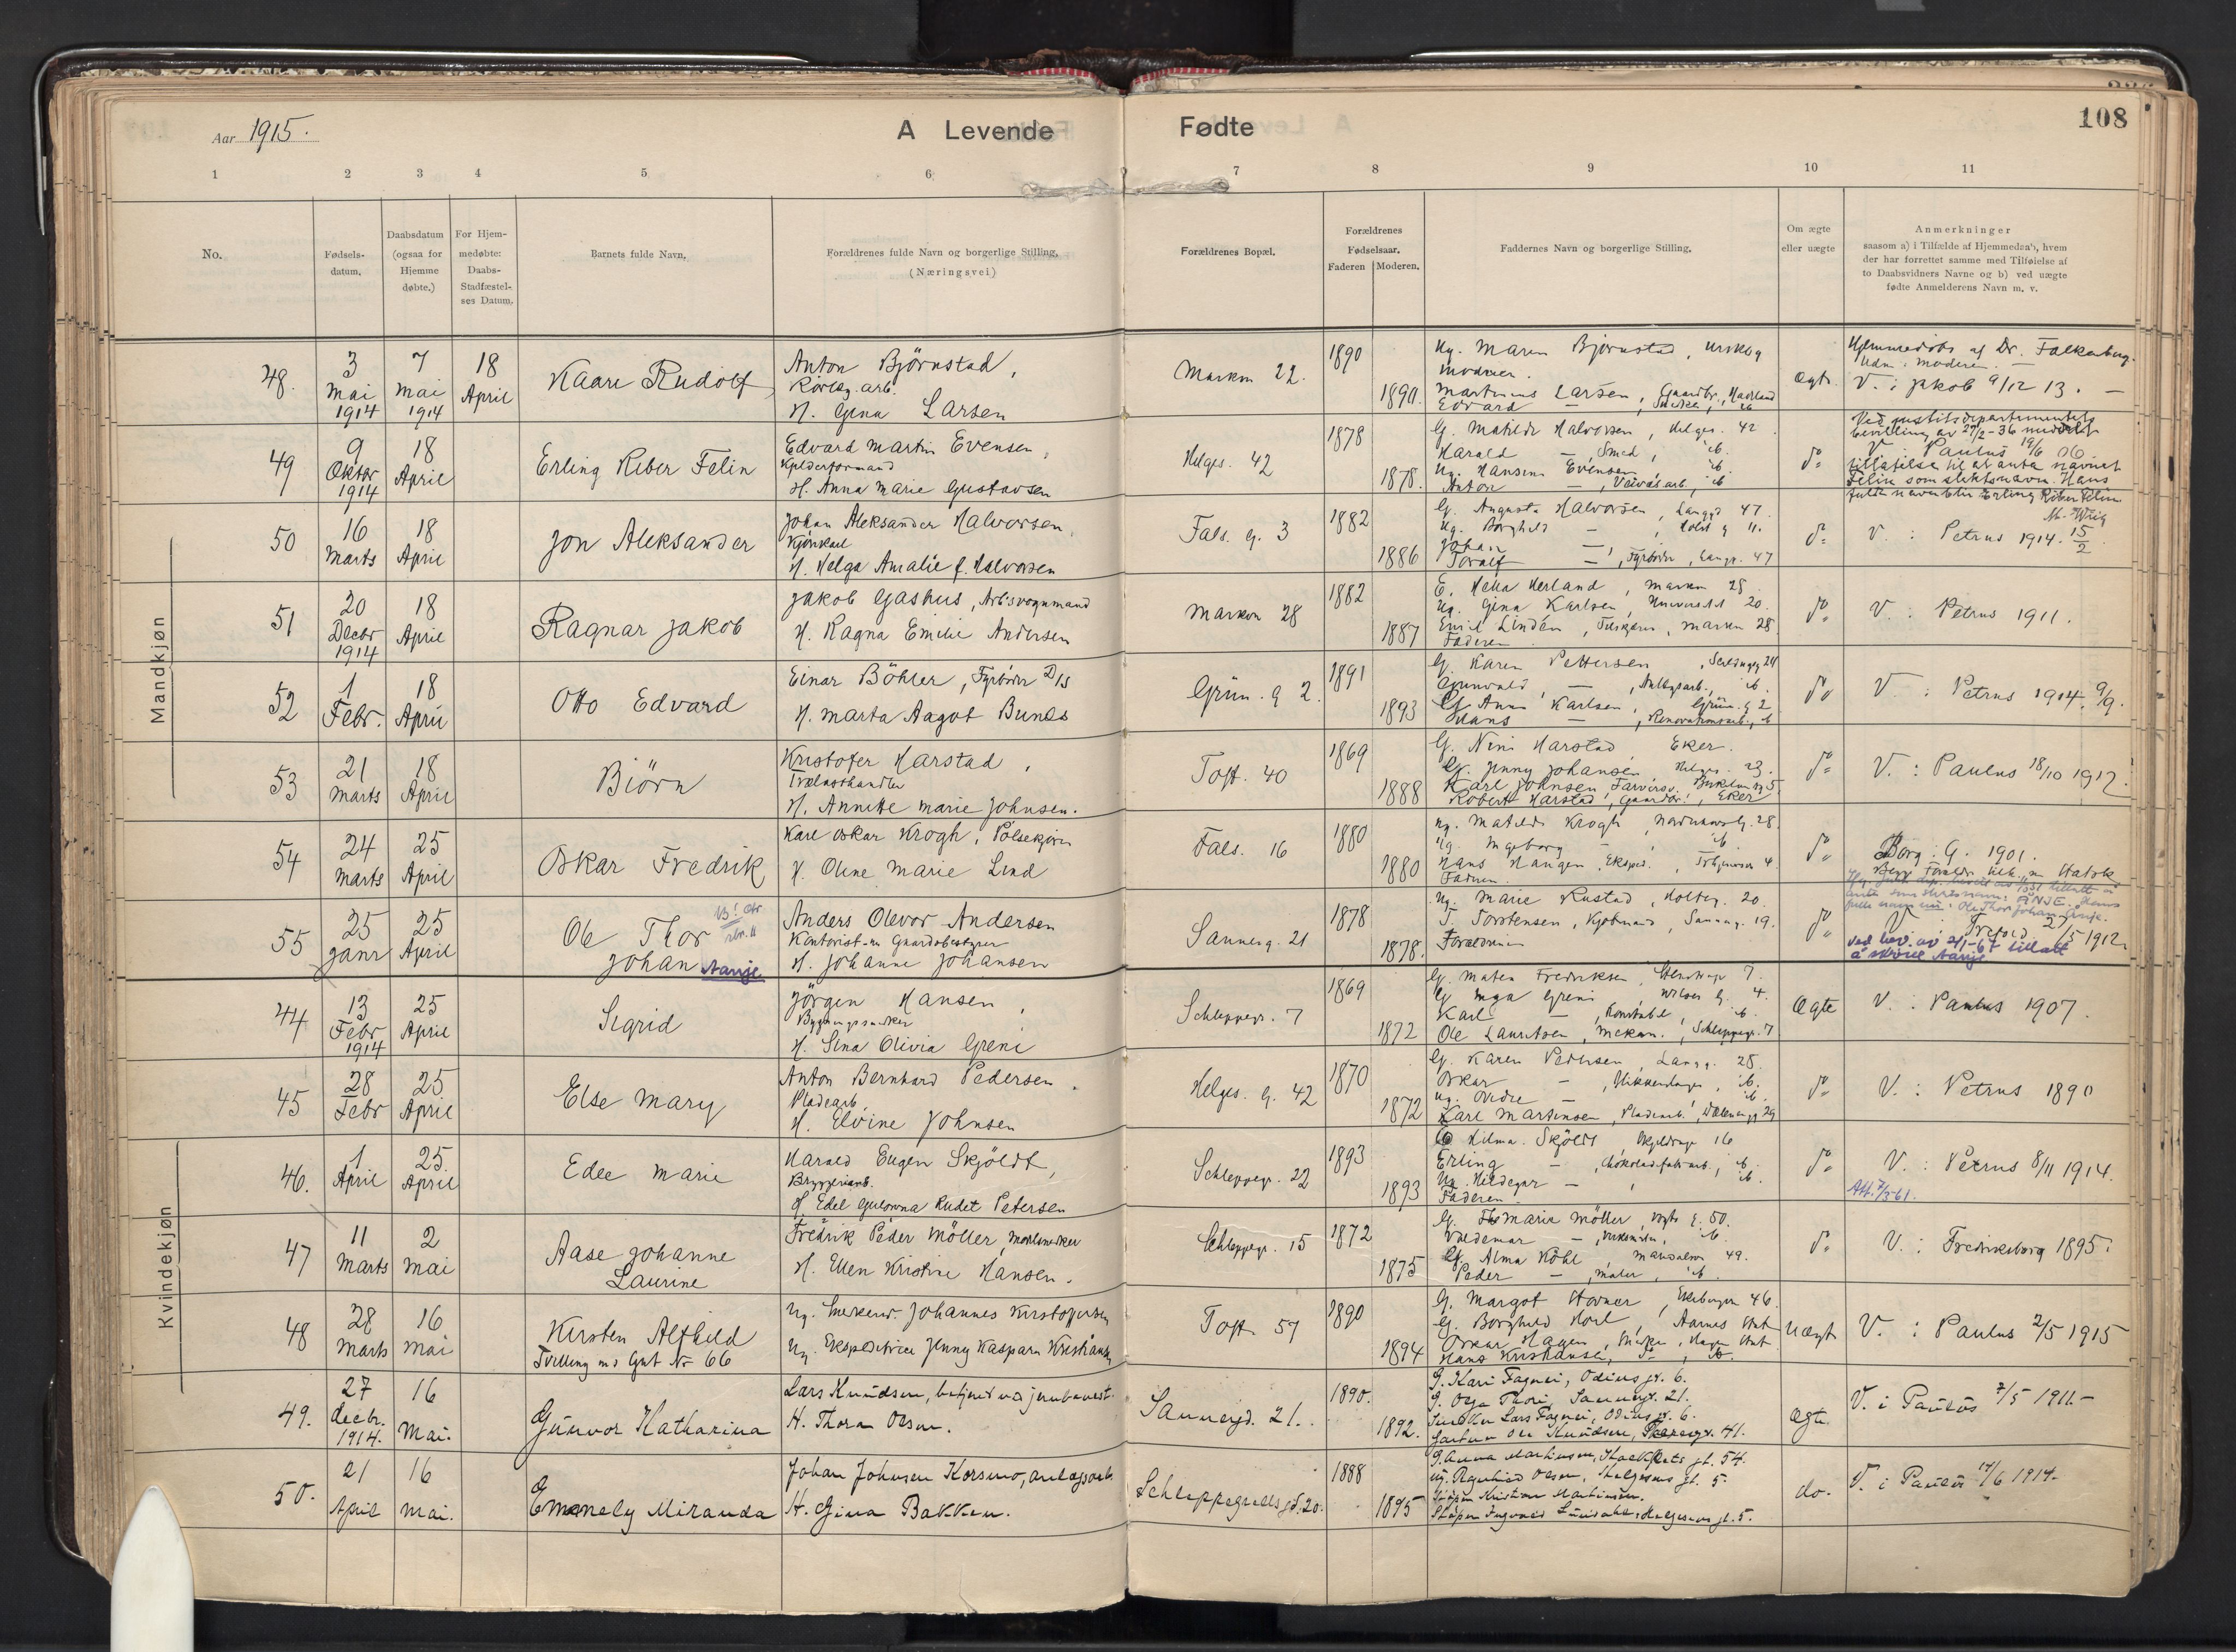 108
Aar 1915.
A Levende Fødte
1 2 3 4 5 6 7 8 9 10 11
No.
Fødsels-
datum.
Daabsdatum
(ogsaa for
Hjemme
døbte.)
For Hjem-
medøbte:
Daabs-
Stadfæstel-
ses Datum.
Barnets fulde Navn.
Forældrenes fulde Navn og borgerlige Stilling.
(Næringsvei)
Forældrenes Bopæl.
Forældrenes
Fødselsaar.
Faderen Moderen.
Faddernes Navn og borgerlige Stilling.
Om ægte
eller uægte
Anmerkninger
saasom a) i Tilfælde af Hjemmedaab, hvem
der har forrettet samme med Tilføielse af
to Daabsvidners Navne og b) ved uægte
fødte Anmelderens Navn m. v.
Mandkjøn
48.
3 Mai 1914
7 Mai 1914
18 April
Kaare Rudolf
Anton Bjørnstad,
Rørlæg. arb.
H. Gina Larsen
Markvn 22.
1890
1890.
Ug. Maren Bjørnstad, Urskog
Moderen.
Martinus Larsen, Gaardbr.,
Edvard
Ægte
Hjemmedøbt af Dr. Falkenberg.
V. i Jakob 9/12 13.
49
9 Oktbr 1914
18 April
Erling Reber Felin
Edvard Martin Evensen,
Kjelderformand
H. Anna Marie Gustavsen
Helges. 42
1878
1878.
G. Matilde Halvorsen, Helges. 42
Harald — , Smed, ib.
Ug. Hansine Evensen ib.
Anton — , Veivæs.arb., ib
do
Ved justitsdepartementets
bevilling av 27/2-36 meddelt
V. Paulus 19/6 06
tillatelse til at anta navnet
Felin som slektsnavn. Hans
fulde navn blir Erling Reber Felin
50
16 Marts
18 April
Jon Aleksander
Johan Aleksander Halvorsen,
Kjørekarl
H. Helga Amalie f. Halvorsen
Fals. g. 3
1882
1886
G. Augusta Halvorsen, Langg. 47.
Ug. Borghild —
Johan —
Toralf — , Fyrbøder, Langg. 47
do
V. : Petrus 1914. 15/2
51
20 Decbr 1914
18 April
Ragnar Jakob
Jakob Gashus, Arb.vognmand
H. Ragna Emilie Andersen
Markvn 28
1882
1887
E. Helia Herland, Markvn 28.
Ug. Gina Karlsen, Universitet 20.
Emil Lindén, , Markvn 28
Faderen.
do
V. : Petrus 1911.
52
1 Febr.
18 April
Otto Edvard
Einar Böhler, Fyrbøder D/S
H. Marta Aagot Bunes
Grün. g 2.
1891
1893
G. Karen Pettersen
Gunvald, — , ib.
G. Anna Karlsen, Grün. g 2
Hans — , Renovationsarb., ib
do
V. : Petrus 1914. 9/9.
53
21 Marts
18 April
Biörn
Kristofer Harstad,
Trælasthandler
H. Annette Marie Johnsen.
Toft. 40
1869
1888
G. Nini Harstad, Eker.
G. Jenny Johansen, Helges. 23.
Karl Johnsen Farversv.
Robert Harstad, Gaardbr., Eker
do
V. : Paulus 18/10 1912.
54
24 Marts
25 April
Oskar Fredrik
Karl Oskar Krogh, Pölsekjører
H. Oline Marie Lind
Fals. 16
1880
1880
Ug. Matilde Krogh,
Ug. Ingeborg — ib.
Hans Haugen, Eksped.,
Faderen.
do
Borg. G. 1901.
55
25 Janr
25 April
Ole Thor
Johan Aanje
Anders Olevor Andersen
Kontorist Gaardsbestyrer
H. Johanne Johansen
Sannerg. 21
1878
1878.
Ug. Marie Rustad, Holberg. 20.
T. Torstensen, Kjøbmand, Sannerg. 19.
Forældrene
do
V. : Trefold. 27/5 1912.
ved bev. av 21/1-67 tillatt
å skrive Aanje
Kvindekjøn
44
13 Febr 1914
25 April
Sigrid
Jörgen Hansen,
Bygningssnedker
H. Lina Olivia Greni
Schleppegr. 7
1869
1872
G. Maten Fredriksen, 7.
G. Inga Greni, 4.
Karl — , Konstabel, ib.
Ole Lauritsen, Mekan., Schleppegr. 7
Ægte
V. : Paulus 1907.
45
28 Febr
25 April
Else Mary
Anton Bernhard Pedersen.
Pladearb.
H. Elvine Johnsen
Helges. g. 42
1870
1872
G. Karen Pedersen, Langg. 28.
Oskar — , ib.
Ug. Ovidie — ib.
Karl Martinsen, Pladearb., 29
do
V. : Petrus 1890
46.
1 April
25 April
Edle Marie
Harald Eugen Skjöldt,
Bryggeriarb.
H. Edel Gulovna Rudet Petersen
Schleppegr. 22
1893
1893
G. Hilma Skjöldt, 16
Erling — , Chokoladefab.arb., ib.
Ug. Hildegar — , ib.
Faderen.
do
V. : Petrus 8/11 1914.
Att. 7/3 61.
47
11 Marts
2 Mai
Aase Johanne
Laurine
Fredrik Peder Möller, Modelsnekker
H. Ellen Kristine Hansen.
Schleppegr. 15
1872
1875
G. Marie Möller, Vogts g. 50.
Valdemar — , ib.
G. Alma Köhl, Mandalsv 49.
Peder — , Maler, ib.
do
V. : Fredriksborg 1895.
48
28 Marts
16 Mai
Kirsten Alfhild
Tvilling m. Gut Nr 66
Ug. Snekkersv. Johannes Kristoffersen
Ug. Ekspeditrice Jenny Kaspara Kristiansen
Toft. 57
1890
1894
G. Margot Hovner, 46.
G. Borghild Moel, Aarnes
Oskar Hagen,
Hans Kristiansen,
Uægte
V. : Paulus 2/5 1915
49.
27 decbr. 1914.
16 Mai.
Gunvor Katharina
Lars Knudsen, betjent ved jernbanest.
H. Thora Olsen.
Sannergd. 21.
1890.
1892.
G. Kari Fagnei, Odins gt. 6.
G. Olga Thori, Sannergt. 21.
Snekker Lars Fagnei, Odins gt. 6.
Gartner Ole Knudsen, 41.
Ægte.
V. i Paulus 7/5 1911.-
50.
21 April
16 Mai.
Emmely Miranda
Johan Johnsen Korsmo, anlægsarb.
H. Gina Bakken.
Schleppegrellsgd. 20.
1888
1895
G. Anna Martinsen, gt. 54.
Ug. Ragnhild Olsen, Helgesens gt. 5.
Støper Kristian Martinsen.
Støper Ingvald , Helgesens gt. 5.
do.
V. i Paulus 14/6 1914.